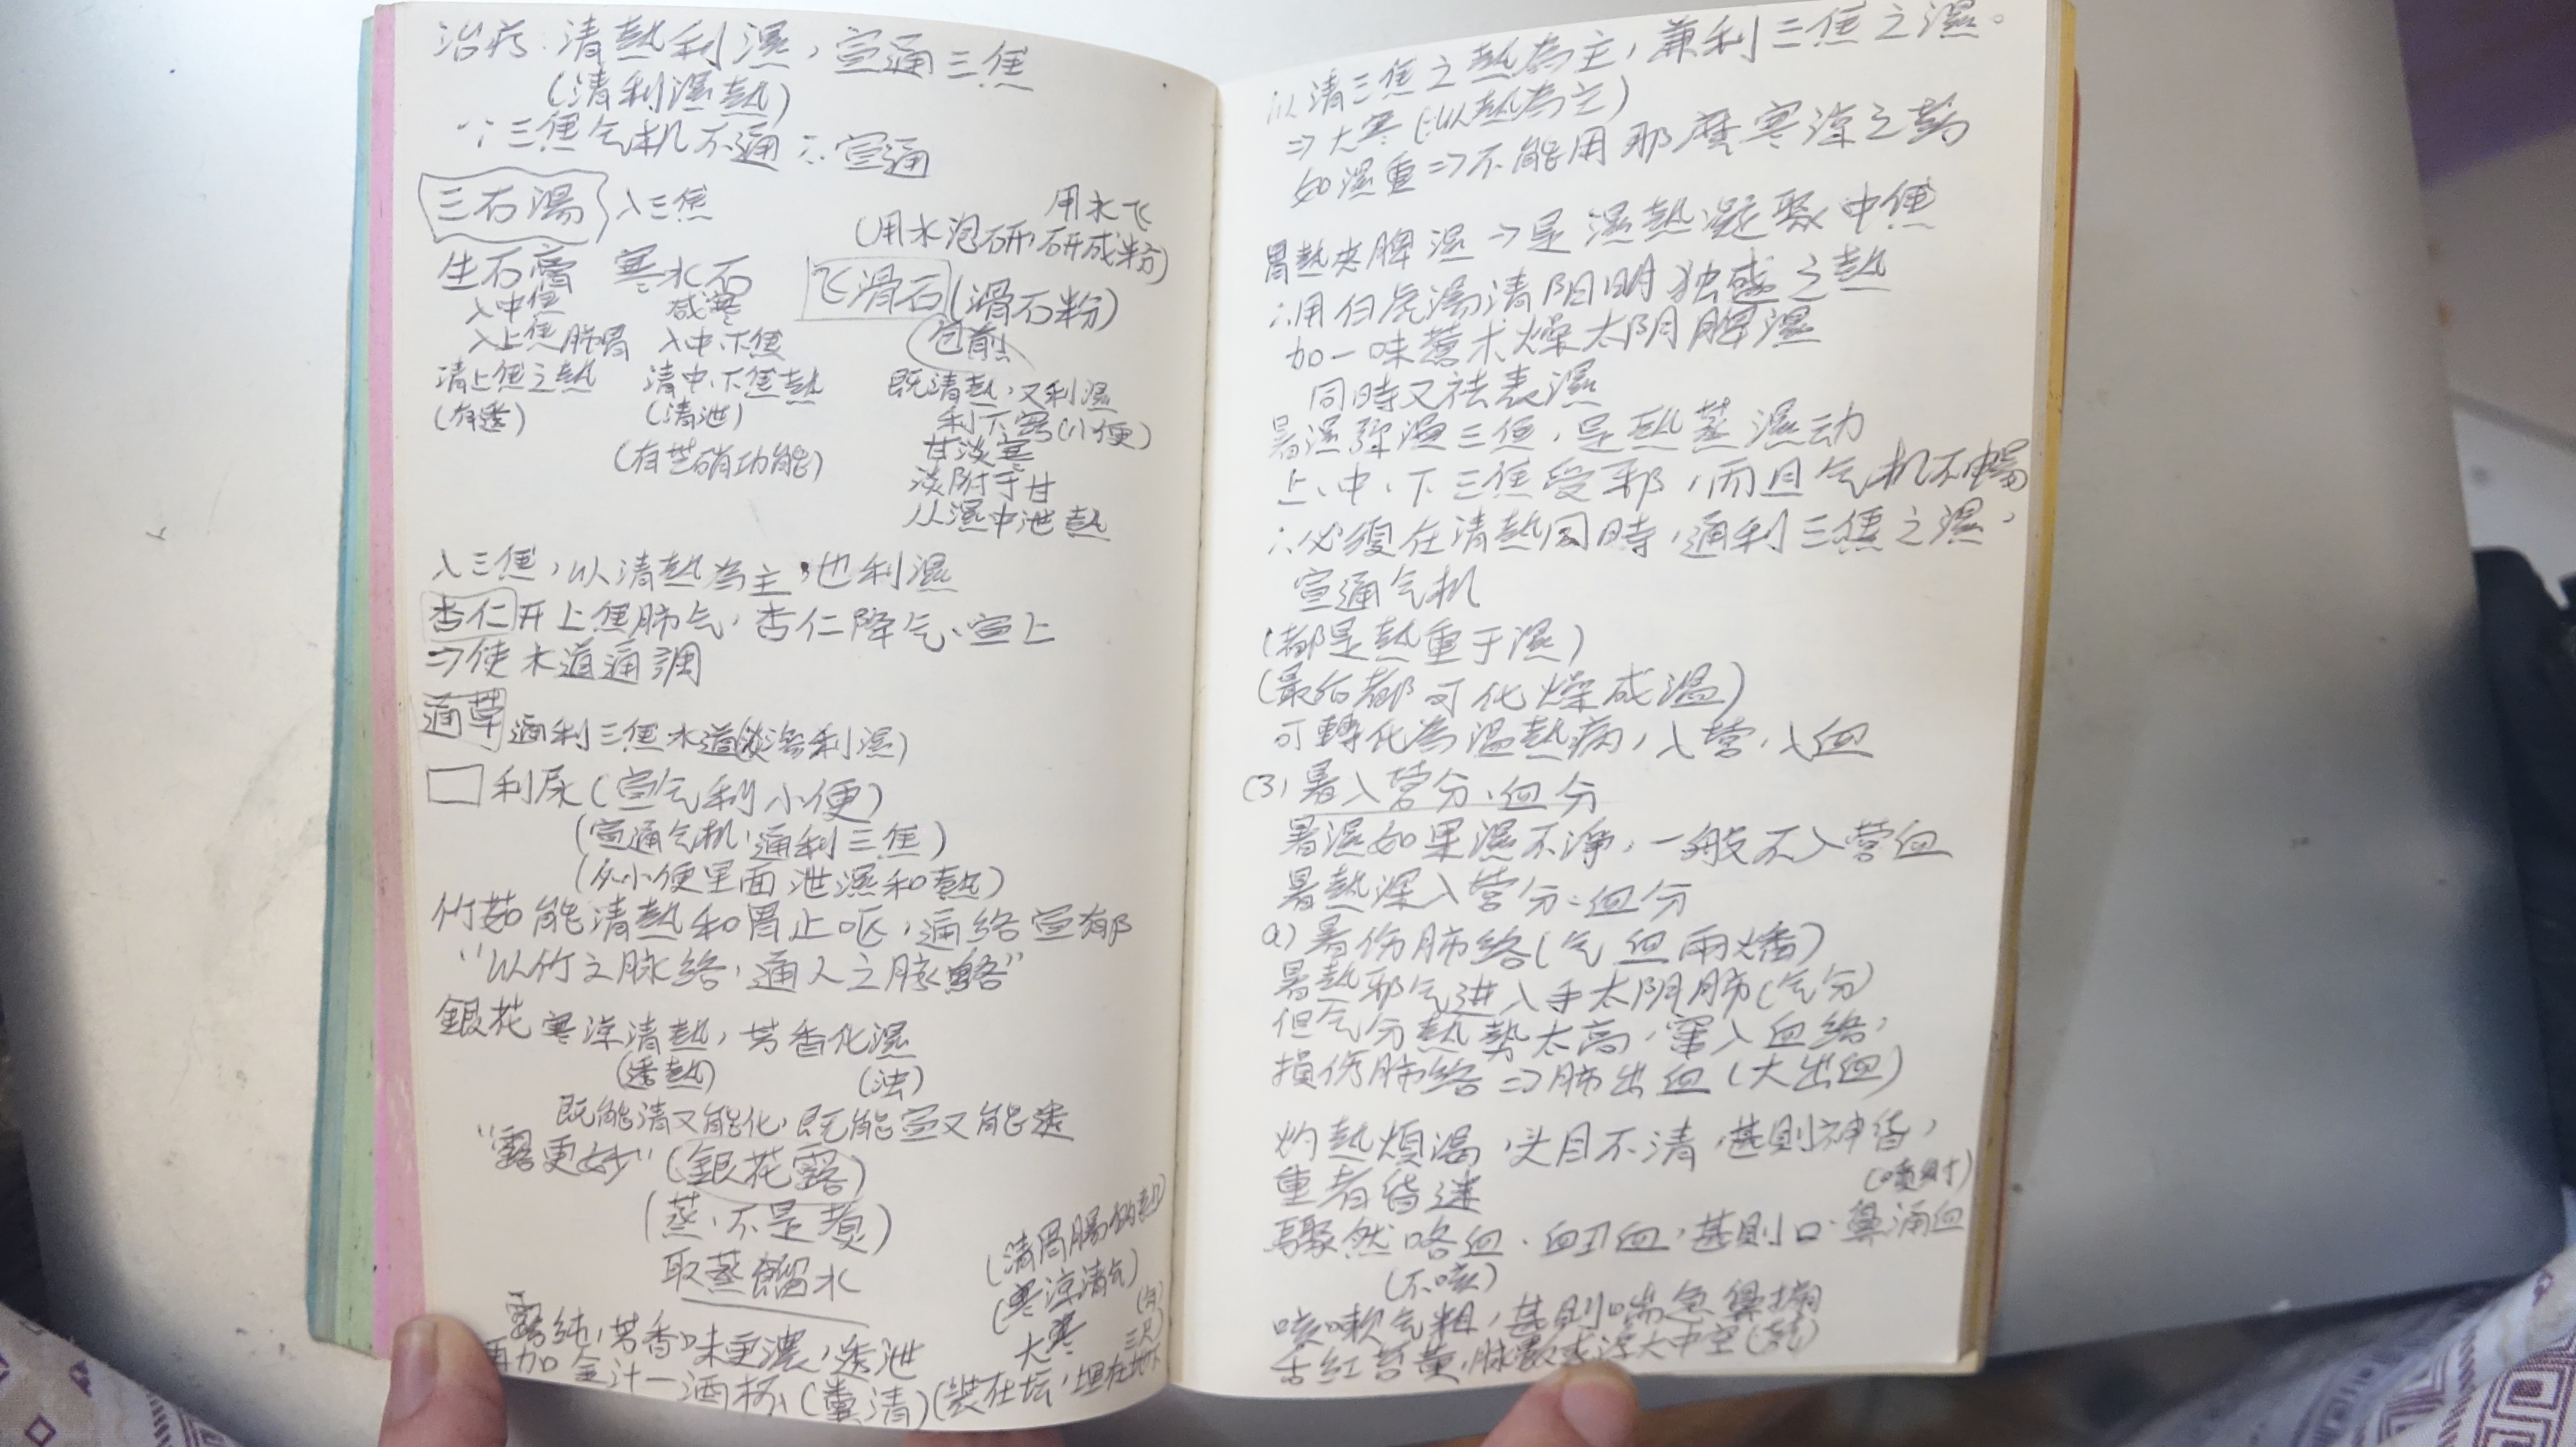 治疗：清熱利濕，宣通三焦
(清利濕熱)
∵三焦气机不通 ∴宣通
三石湯 入三焦
用水飞
(用水泡研，研成粉)
生石膏 寒水石 飞滑石(滑石粉)
入中焦 咸寒 包煎
入上焦肺胃 入中、下焦
清上焦之熱 清中、下焦熱 既清熱，又利濕
(有透) (清泄) 利下窍(小便)
(有芒硝功能) 甘淡寒
淡附于甘
从濕中泄熱
入三焦，以清熱為主，也利濕
杏仁开上焦肺气，杏仁降气、宣上
⇒使水道通調
通草 通利三焦水道(淡滲利濕)
□利尿(宣气利小便)
(宣通气机，通利三焦)
(从小便里面泄濕和熱)
竹茹能清熱和胃止呕，通络宣郁
"以竹之脉络，通人之脉络"
銀花 寒凉清熱，芳香化濕
(透熱) (浊)
既能清又能化，既能宣又能透
"露更妙"(銀花露)
(蒸，不是煮)
取蒸餾水
露純，芳香味更濃，透泄
再加金汁一酒杯，(糞清)(裝在坛，埋在地下
三尺)
(清胃腸的熱)
(寒凉清气)
大寒
以清三焦之熱為主，兼利三焦之濕。
⇒大寒(∵以熱為主)
如濕重⇒不能用那麼寒凉之药
胃熱夹脾濕⇒是濕熱凝聚中焦
∴用白虎湯清阳明独盛之熱
加一味蒼术燥太阴脾濕
同時又祛表濕
暑濕弥漫三焦，是熱蒸濕动
上、中、下三焦受邪，而且气机不暢
∴必須在清熱同時，通利三焦之濕，
宣通气机
(都是熱重于濕)
(最后都可化燥成温)
可轉化為温熱病，入营、入血
(3)暑入营分、血分
暑濕如果濕不净，一般不入营血
暑熱深入营分、血分
a)暑伤肺络(气血兩燔)
暑熱邪气进入手太阴肺(气分)
但气分熱勢太高，窜入血络，
損伤肺络⇒肺出血(大出血)
灼熱煩渴，头目不清，甚則神昏，
重者昏迷
(噴射)
驟然咯血、衄血，甚則口、鼻涌血
(不咳)
咳嗽气粗，甚則喘急鼻搧
舌紅苔黄，脉數或浮大中空(芤)